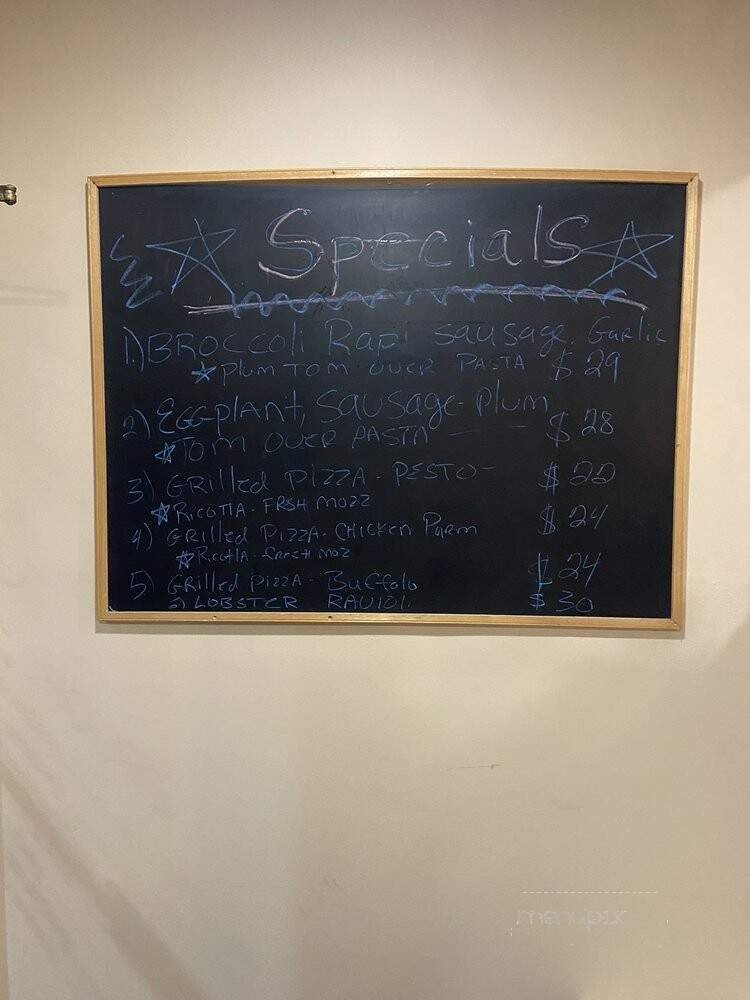 Specials
1.) BROCCOLI Rapi sausage. Garlic
PLUM TOM OVER PASTA $29
2) EGGPLANT, SAUSAGE- Plum $28
TOM OVER PASTA
3) GRilled PIZZA- PESTO- $22
RICOTTA- FRSH MOZZ
4) GRilled PIZZA- CHICKEN PARM $24
RICOTTA- FRESH MOZ
5) GRilled PIZZA- Buffalo $24
LOBSTER RAVIOLI. $30
menupix